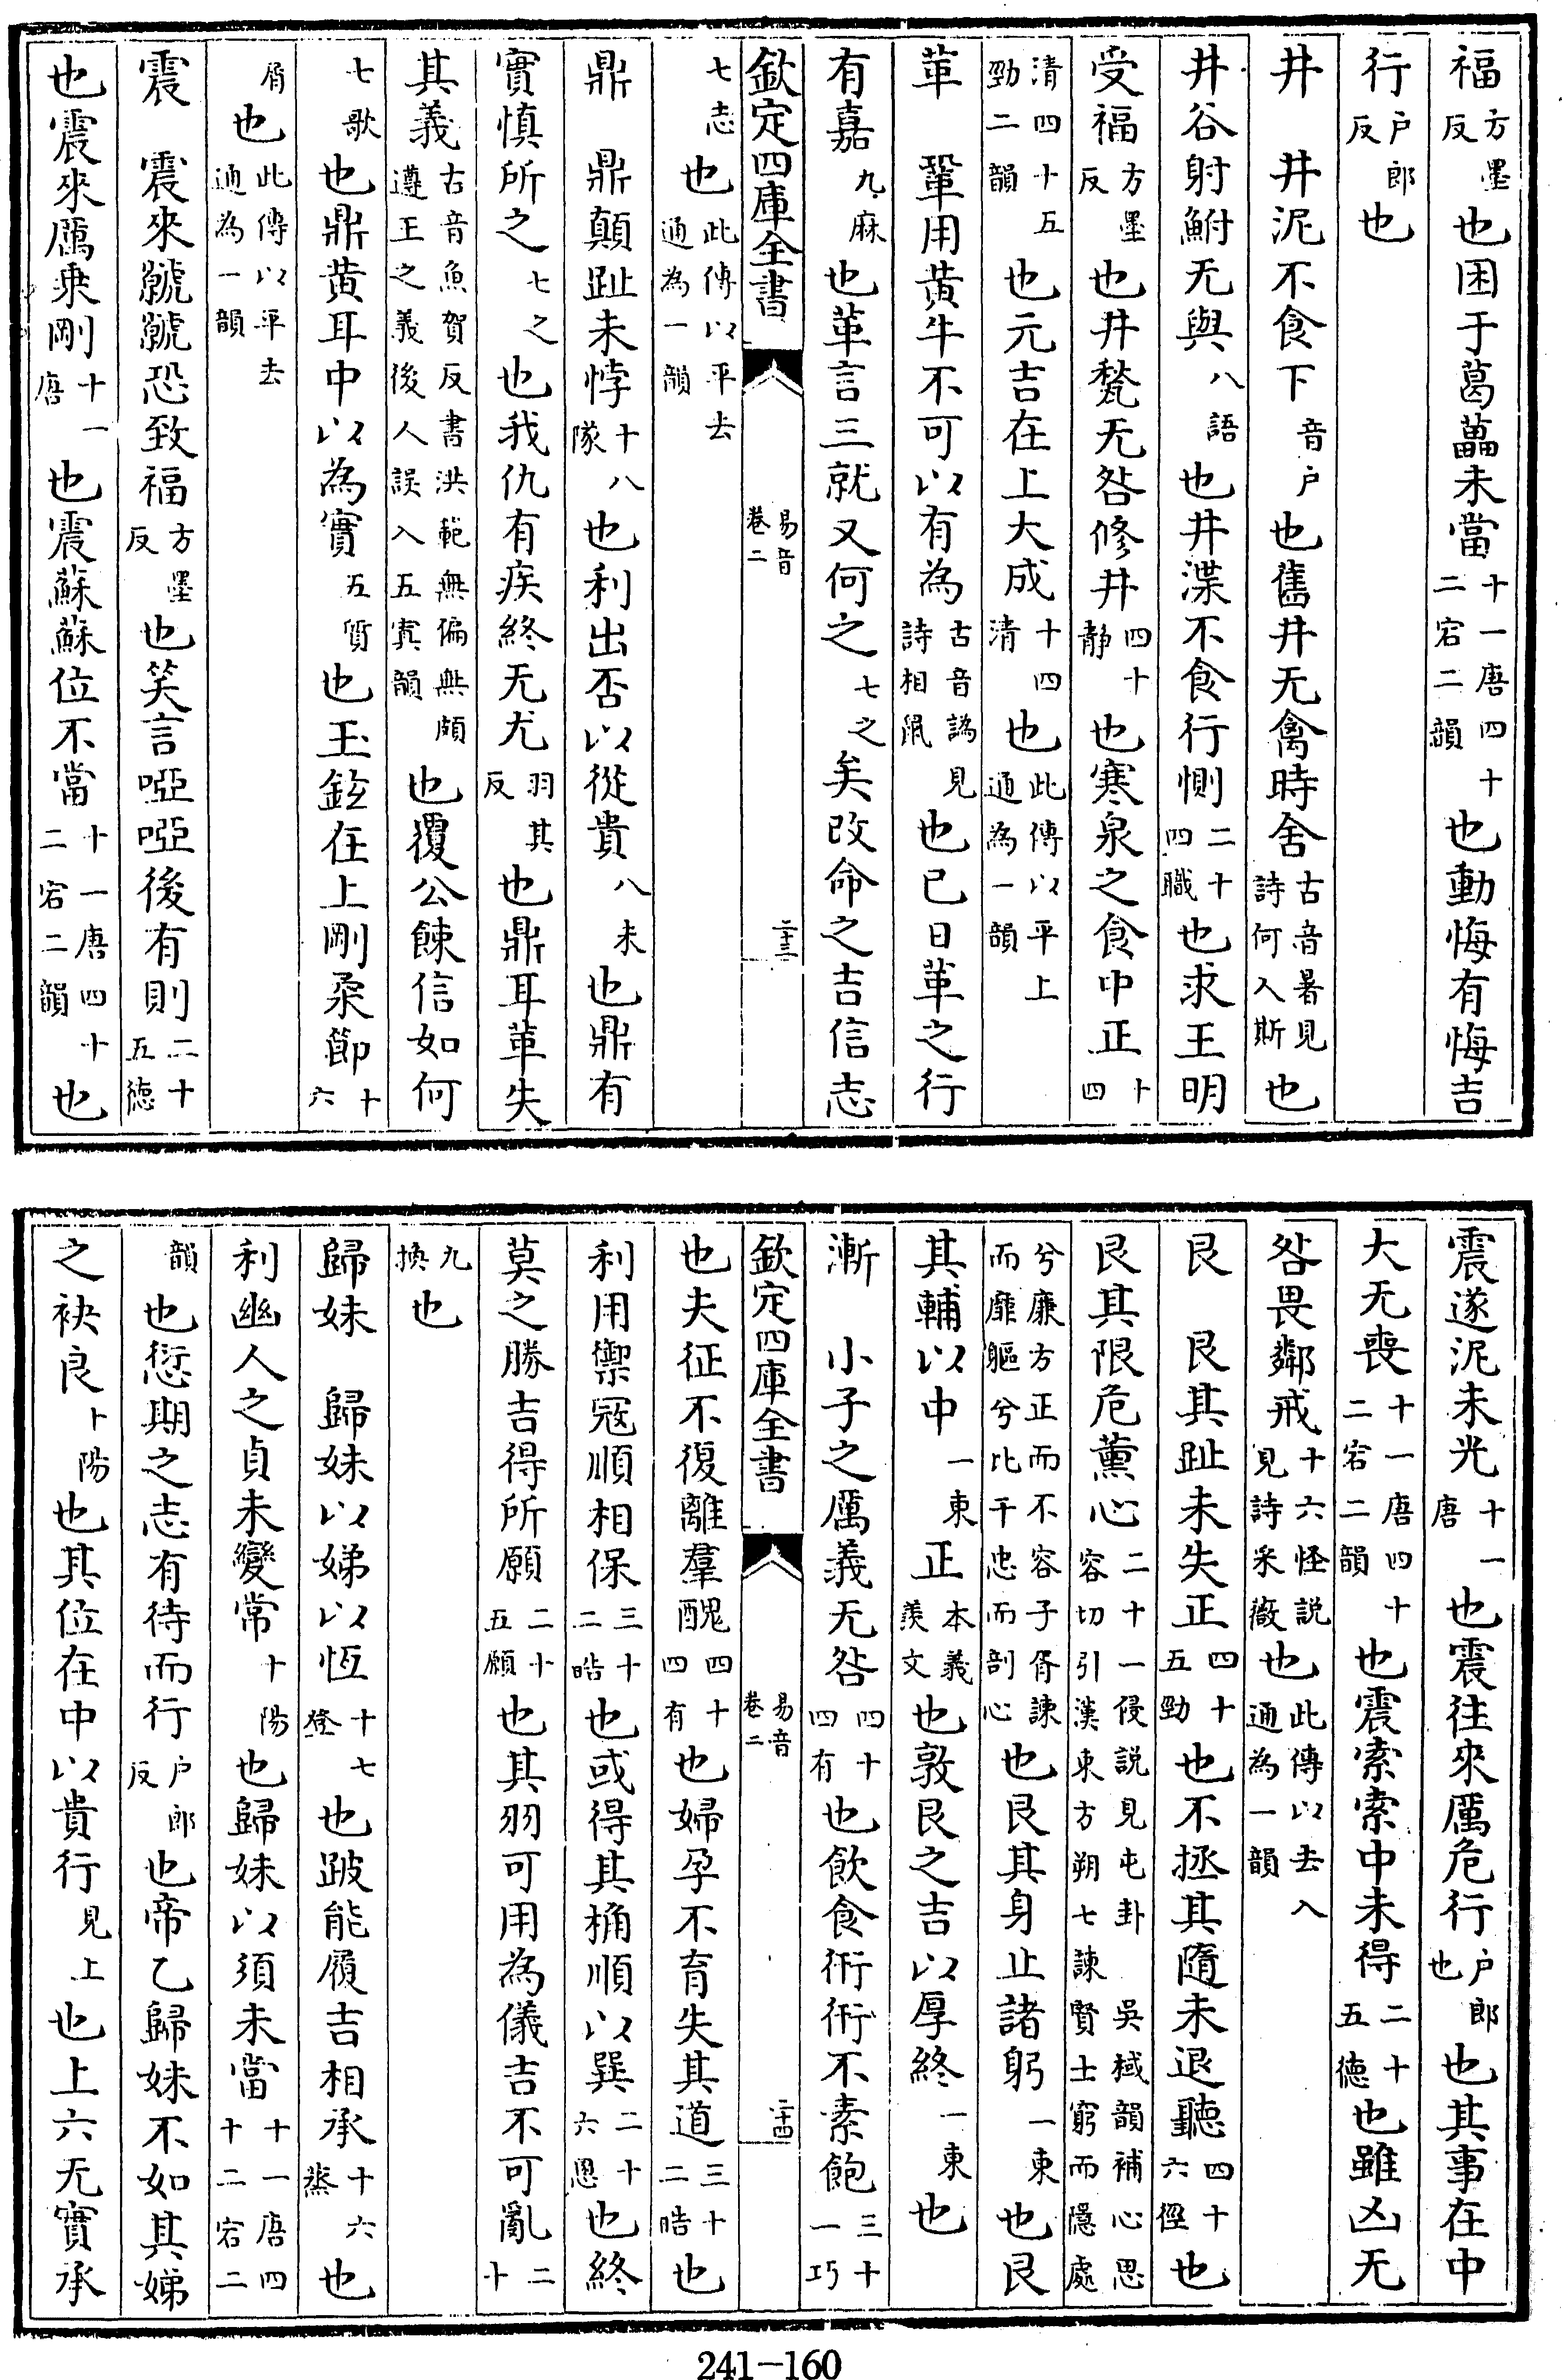 福方墨反也困于葛藟未當十一唐四十二宕二韻也動悔有悔吉
行户郎反也
井　井泥不食下音户也舊井无禽時舍古音暑見詩何人斯也
井谷射鮒无與八語也井渫不食行惻二十四職也求王明
受福方墨反也井甃无咎修井四十静也寒泉之食中正十四
清四十五勁二韻也元吉在上大成十四清也此傳以平上通為一韻
革　鞏用黄牛不可以有為古音譌見詩相鼠也已日革之行
有嘉九麻也革言三就又何之七之矣改命之吉信志
欽定四庫全書　易音卷二　二十三
七志也此傳以平去通為一韻
鼎　鼎顛趾未悖十八隊也利出否以從貴八未也鼎有
實慎所之七之也我仇有疾終无尤羽其反也鼎耳革失
其義古音魚賀反書洪範無偏無頗遵王之義後人誤入五寘韻也覆公餗信如何
七歌也鼎黄耳中以為實五質也玉鉉在上剛柔節十六
屑也此傳以平去通為一韻
震　震來虩虩恐致福方墨反也笑言啞啞後有則二十五德
也震來厲乘剛十一唐也震蘇蘇位不當十一唐四十二宕二韻也
震遂泥未光十一唐也震往來厲危行户郎也也其事在中
大无喪十一唐四十二宕二韻也震索索中未得二十五德也雖凶无
咎畏鄰戒十六怪説見詩采薇也此傳以去入通為一韻
艮　艮其趾未失正四十五勁也不拯其隨未退聽四十六徑也
艮其限危薰心二十一侵説見屯卦　吳棫韻補心思容切引漢東方朔七諫賢士窮而隱處
兮廉方正而不容子胥諫而靡軀兮比干忠而剖心也艮其身止諸躬一東也艮
其輔以中一東正本義羨文也敦艮之吉以厚終一東也
漸　小子之厲義无咎四十四有也飲食衎衎不素飽三十一巧
欽定四庫全書　易音卷二　二十四
也夫征不復離羣醜四十四有也婦孕不育失其道三十二晧也
利用禦寇順相保三十二晧也或得其桷順以巽二十六慁也終
莫之勝吉得所願二十五願也其羽可用為儀吉不可亂二十
九換也
歸妹　歸妹以娣以恆十七登也跛能履吉相承十六蒸也
利幽人之貞未變常十陽也歸妹以須未當十一唐四十二宕二
韻也愆期之志有待而行户郎反也帝乙歸妹不如其娣
之袂良十陽也其位在中以貴行見上也上六无實承
241-160